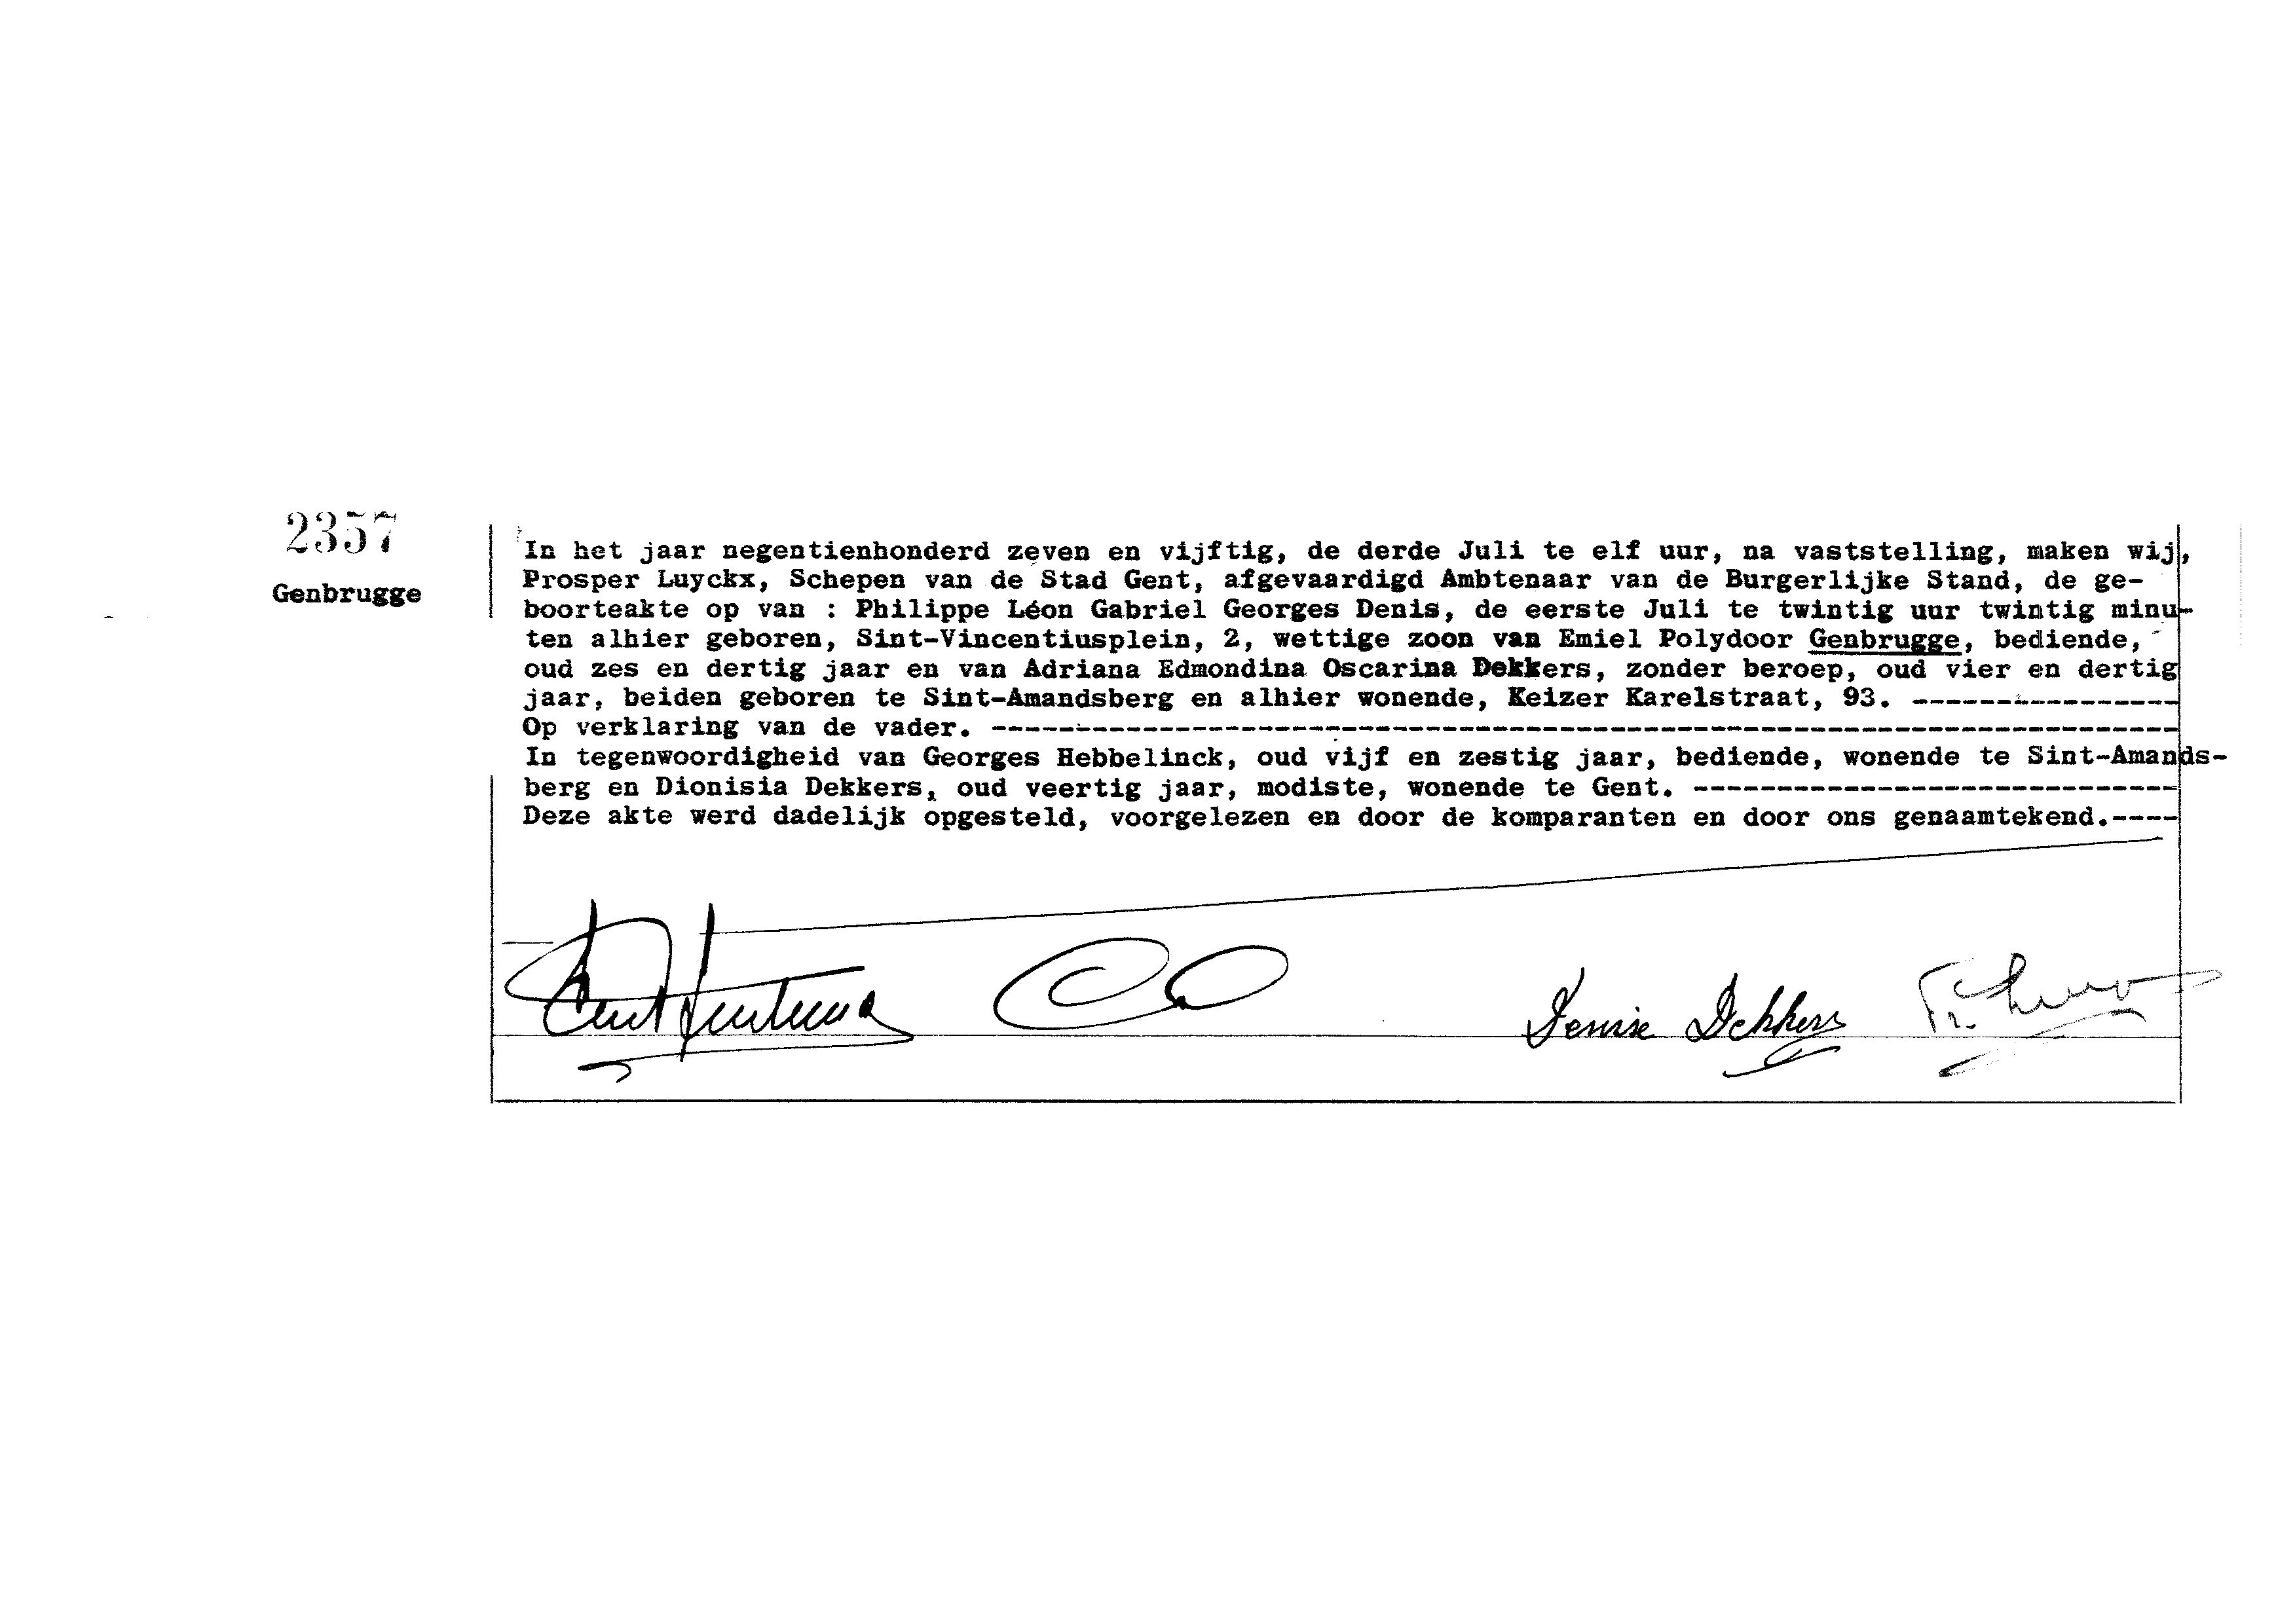 2357
Genbrugge
In het jaar negentienhonderd zeven en vijftig, de derde Juli te elf uur, na vaststelling, maken wij,
Prosper Luyckx, Schepen van de Stad Gent, afgevaardigd Ambtenaar van de Burgerlijke Stand, de ge-
boorteakte op van : Philippe Léon Gabriel Georges Denis, de eerste Juli te twintig uur twintig minu-
ten alhier geboren, Sint-Vincentiusplein, 2, wettige zoon van Emiel Polydoor Genbrugge, bediende,
oud zes en dertig jaar en van Adriana Edmondina Oscarina Dekkers, zonder beroep, oud vier en dertig
jaar, beiden geboren te Sint-Amandsberg en alhier wonende, Keizer Karelstraat, 93. ----------------
Op verklaring van de vader. -----------------------------------------------------------------------
In tegenwoordigheid van Georges Hebbelinck, oud vijf en zestig jaar, bediende, wonende te Sint-Amands-
berg en Dionisia Dekkers, oud veertig jaar, modiste, wonende te Gent. -----------------------------
Deze akte werd dadelijk opgesteld, voorgelezen en door de komparanten en door ons genaamtekend.----
Denise Dekkers